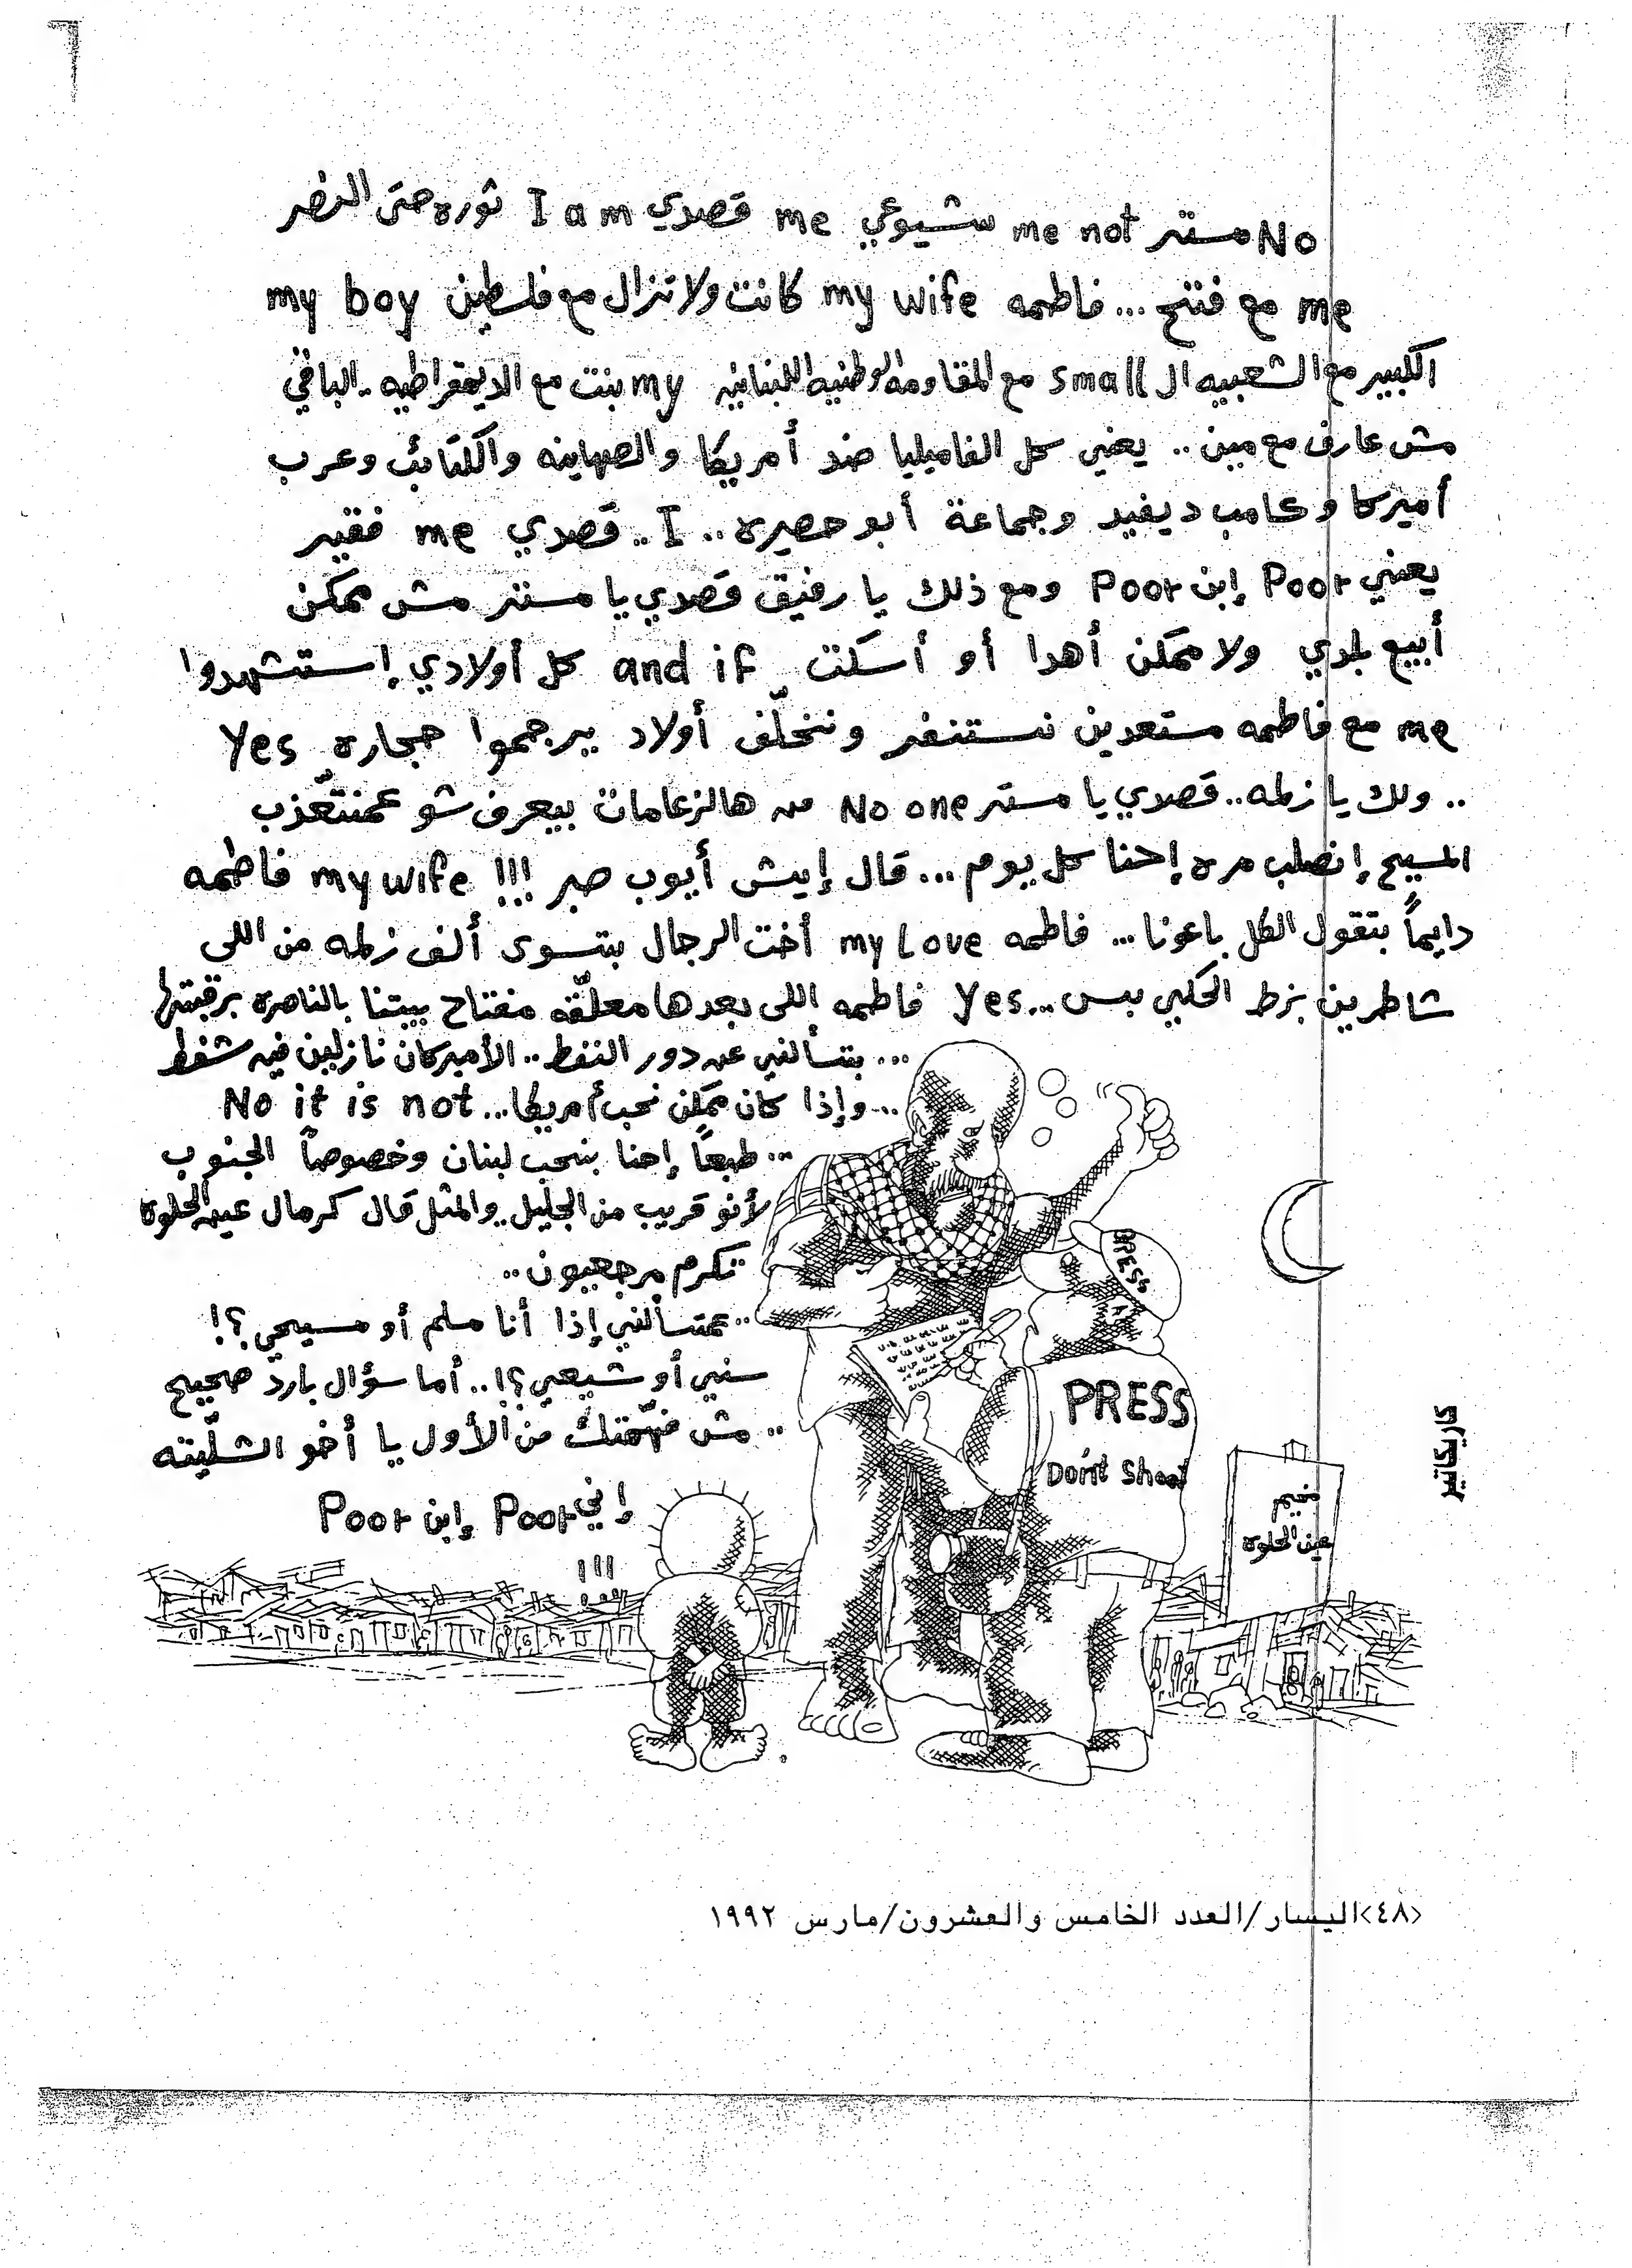 No مستر me not شيوعي me قصدي I am ثوره حتى النصر
me مع فتح ... فاطمه my wife كانت ولا تزال مع فلسطين my boy
الكبير مع الشعبيه ال small مع المقاومه الوطنيه اللبنانيه my بنت مع الديمقراطيه .. الباقي
مش عارف مع مين .. يعني كل الفاميليا ضد أمريكا والصهاينه والكتائب وعرب
أميركا وكامب ديفيد وجماعة أبو حصيره .. I .. قصدي me فقير
يعني Poor إبن Poor ومع ذلك يا رفيق قصدي يا مستر مش ممكن
أبيع بلدي ولا ممكن أهدا أو أسكت and if كل أولادي إستشهدوا
me مع فاطمه مستعدين نستنفر ونخلّف أولاد يرجموا حجاره Yes
.. ولك يا زلمه .. قصدي يا مستر No one من هالزعامات بيعرف شو عمنتعزب
المسيح إنصلب مره إحنا كل يوم ... قال إيش أيوب صبر !!! my wife فاطمه
دايماً بتقول الكل باعونا ... فاطمه my Love أخت الرجال بتسوى ألف زلمه من اللى
شاطرين بزط الحكي بس ... Yes فاطمه اللى بعدها معلّقه مفتاح بيتنا بالناصره برقبتها
... بتسألني عن دور النفط .. الأميركان نازلين فيه شفط
... وإذا كان ممكن نحب أمريكا ... No it is not
... طبعاً إحنا بنحب لبنان وخصوصاً الجنوب
لأنو قريب من الجليل .. والمثل قال كرمال عين الحلوه
تكرم مرجعيون ..
.. عمتسألني إذا أنا مسلم أو مسيحي ؟!
سني أو شيعي ؟! .. أما سؤال بارد صحيح
.. مش فهّمتك من الأول يا أخو الشليته
إني Poor إبن Poor
!!!
PRESS
PRESS
Don't Shoot
مخيم
عين الحلوه
كاريكاتير
<٤٨>اليسار/العدد الخامس والعشرون/مارس ١٩٩٢